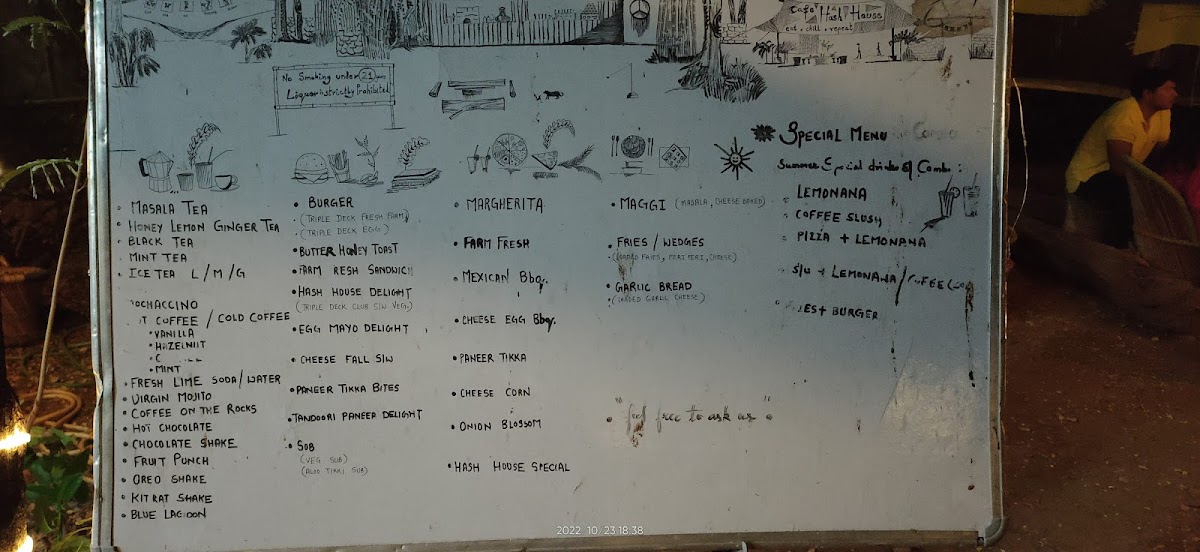 Cafe Hash House
eat • chill • repeat
No Smoking under 21 yrs
Liquor is strictly Prohibited
• MASALA TEA
• HONEY LEMON GINGER TEA
• BLACK TEA
• MINT TEA
• ICE TEA L/M/G
OCHACCINO
T COFFEE / COLD COFFEE
• VANILLA
• HAZELNUT
• C
• MINT
• FRESH LIME SODA/WATER
• VIRGIN MOJITO
• COFFEE ON THE ROCKS
• HOT CHOCOLATE
• CHOCOLATE SHAKE
• FRUIT PUNCH
• OREO SHAKE
• KIT KAT SHAKE
• BLUE LAGOON
• BURGER
• (TRIPLE DECK FRESH FARM)
• (TRIPLE DECK EGG)
• BUTTER HONEY TOAST
• FARM RESH SANDWICH
• HASH HOUSE DELIGHT
(TRIPLE DECK CLUB S/W VEG)
• EGG MAYO DELIGHT
• CHEESE FALL S/W
• PANEER TIKKA BITES
• TANDOORI PANEER DELIGHT
• SUB
(VEG SUB)
(ALOO TIKKI SUB)
• MARGHERITA
• FARM FRESH
• MEXICAN Bbq.
• CHEESE EGG Bbq.
• PANEER TIKKA
• CHEESE CORN
• ONION BLOSSOM
• HASH HOUSE SPECIAL
• MAGGI (MASALA, CHEESE BAKED)
• FRIES / WEDGES
• (LOADED FRIES, PERI PERI, CHEESE)
• GARLIC BREAD
• (LOADED GARLIC CHEESE)
• "feel free to ask us" •
SPECIAL MENU Combo
Summer Special drinks & Combo :
LEMONANA
COFFEE SLUSH
PIZZA + LEMONANA
S/W + LEMONANA/COFFEE
BURGER
2022. 10. 23 18:38